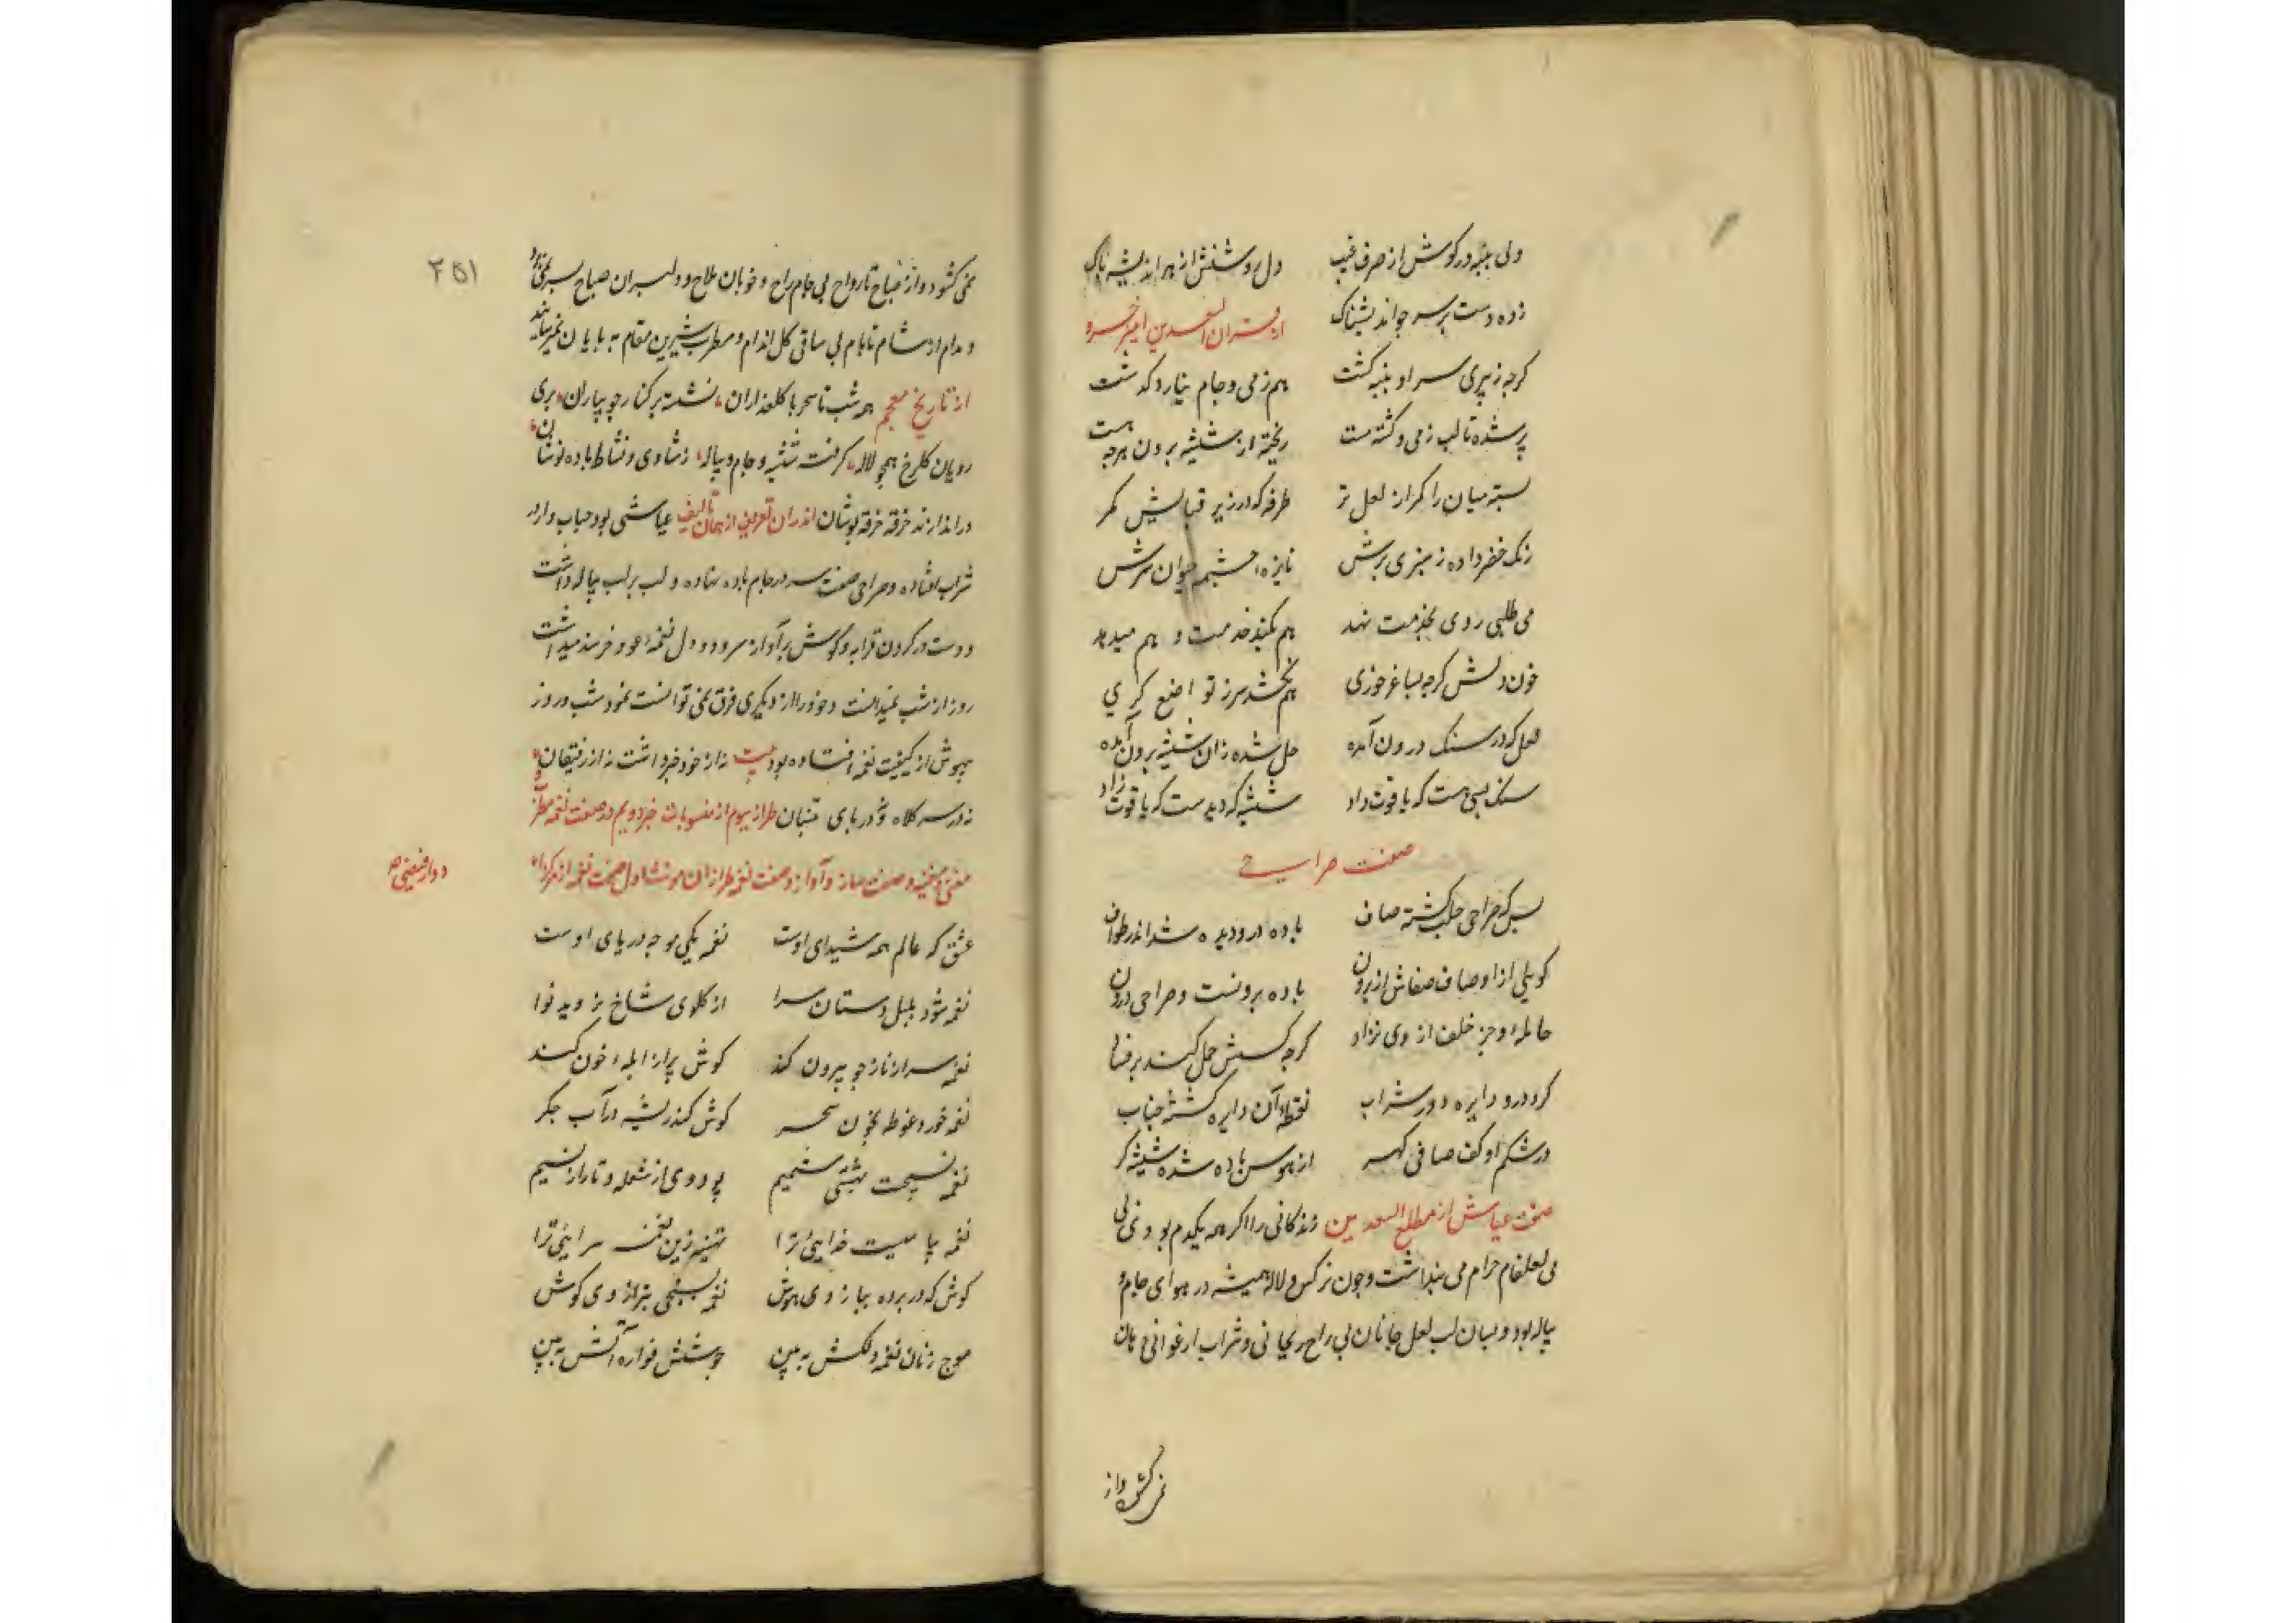 ولی پنبه در کوش از حرف غیب
دل روشنش از هر اندیشه پاک
زده دست بر سر جو اندیشناک
از قران السعدین امیر خسرو
کرچه ز پیری سر او پنبه کشت
هم ز می و جام نیارد کذشت
پر شده تا لب ز می و کشته مست
ریخته از شیشه برون هرچه هست
بسته میان را کمر از لعل تر
طرفه که در زیر قبایش کمر
رنک خضر داده ز سبزی برش
نایزه چشمه حیوان سرش
می طلبی روی بخدمت نهد
هم بکند خدمت و هم میدهد
خون دلش کرچه بساغر خوری
هم نکشد سر ز تواضع کری
لعل که در سنک درون آمده
حل شده زان شیشه برون آمده
سنک بسی هست که یاقوت داد
شیشه که دیدست که یاقوت زاد
صفت صراحی
بس که صراحی حلب کشته صاف
باده در و دیده شد اندر طواف
کویی از اوصاف صفاش از برون
باده برونست و صراحی درون
حامله او جز خلف از وی نزاد
کرچه کسش حمل کسند بر فساد
کرد در و دایره دور شراب
نقطه آن دایره کشته حباب
در شکم او کف صافی کهر
از هوس باده شده شیشه کر
صفت عیاش از مطلع السعدین زندکانی را اکر همه یکدم بودی بی
می لعلفام حرام می پنداشت و چون نرکس و لاله همیشه در هوای جام و
پیاله بود و بسان لب لعل جانان بی راح ریحانی و شراب ارغوانی دهان
نمی کشود و از
۲۵۱
نمی کشود و از صباح تا رواح بی جام راح و خوبان ملاح و دلبران صباح بسر نمی برد
و مدام از شام تا بام بی ساقی کل اندام و مطرب شیرین مقام به پایان نمی رسانید
از تاریخ معجم همه شب تا سحر با کلعذاران نشسته بر کنار جویباران پری
رویان کلرخ همچو لاله کرفته شیشه و جام و پیاله ز شادی و نشاط باده نوشان
در اندازند خرقه خرقه پوشان اندران تعریف از همان تالیف عیاشی بود حباب وار در
شراب افتاده و صراحی صفت سر در جام باده نهاده و لب بر لب پیاله داشت
و دست در کردن قرابه و کوش بر آواز سرود و دل نغمه عود خرسند میداشت
روز از شب نمیدانست و خود را از دیکری فرق نمی توانست نمود شب و روز
بیهوش از کیفیت نغمه افتاده بود بیت نه از خود خبر داشت نه از رفیقان
نه در سر کلاه و نه در پای تنبان طراز سیوم از منسوبات خبر دویم در صفت نغمه مطرز
مغنی و مغنیه و صفت ساز و آواز و صفت نغمه طرازان مونشاد دل صفت نغمه از مرکز ادوار فیضی
عشق که عالم همه شیدای اوست
نغمه یکی موجه دریای اوست
نغمه شود بلبل دستان سرا
از کلوی شاخ بروید نوا
نغمه سر از ناز چو بیرون کند
کوش پر از آبله خون کند
نغمه خورد غوطه بخون سحر
کوش کند ریشه در آب جکر
نغمه نسیجست بهشتی شمیم
پود وی از شعله و تار از نسیم
کوش که در پرده بباز وی هوش
موج زنان نغمه دلکش به بین
جوشش فواره آتش به بین